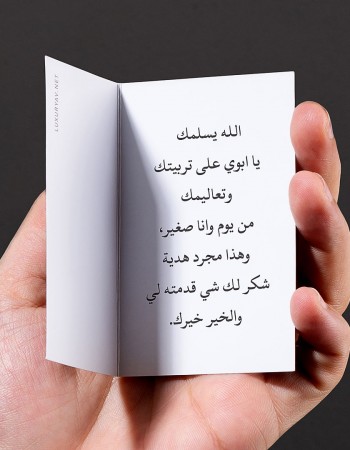 الله يسلمك
يا ابوي على تربيتك
وتعاليمك
من يوم وانا صغير،
وهذا مجرد هدية
شكر لك شي قدمته لي
والخير خيرك.